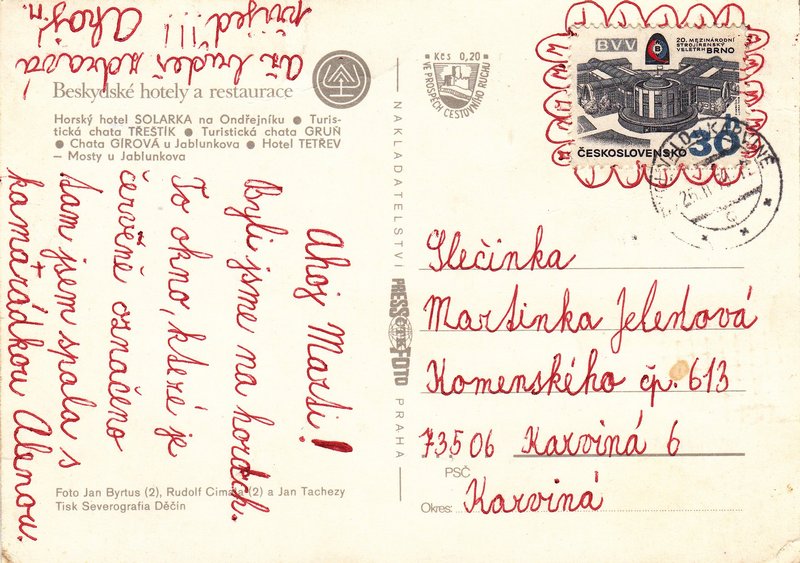 Až budeš zdravá
přijeď!!! Ahoj!
Beskydské hotely a restaurace
Horský hotel SOLARKA na Ondřejníku ● Turis-
tická chata TŘEŠTÍK ● Turistická chata GRUŇ
● Chata GÍROVÁ u Jablunkova ● Hotel TETŘEV
– Mosty u Jablunkova
Ahoj Marti!
Byli jsme na horách.
To okno, které je
červěně označeno
tam jsem spala s
kamarádkou Alenou.
Foto Jan Byrtus (2), Rudolf Cimala (2) a Jan Tachezy
Tisk Severografia Děčín
NAKLADATELSTVÍ PRESSFOTO PRAHA
Kčs 0,20
VE PROSPĚCH CESTOVNÍHO RUCHU
BVV
20. MEZINÁRODNÍ
STROJÍRENSKÝ
VELETRH BRNO
ČESKOSLOVENSKO
30
h
Slečinka
Martinka Jelenová
Komenského čp. 613
73506 Karviná 6
PSČ
Okres: Karviná